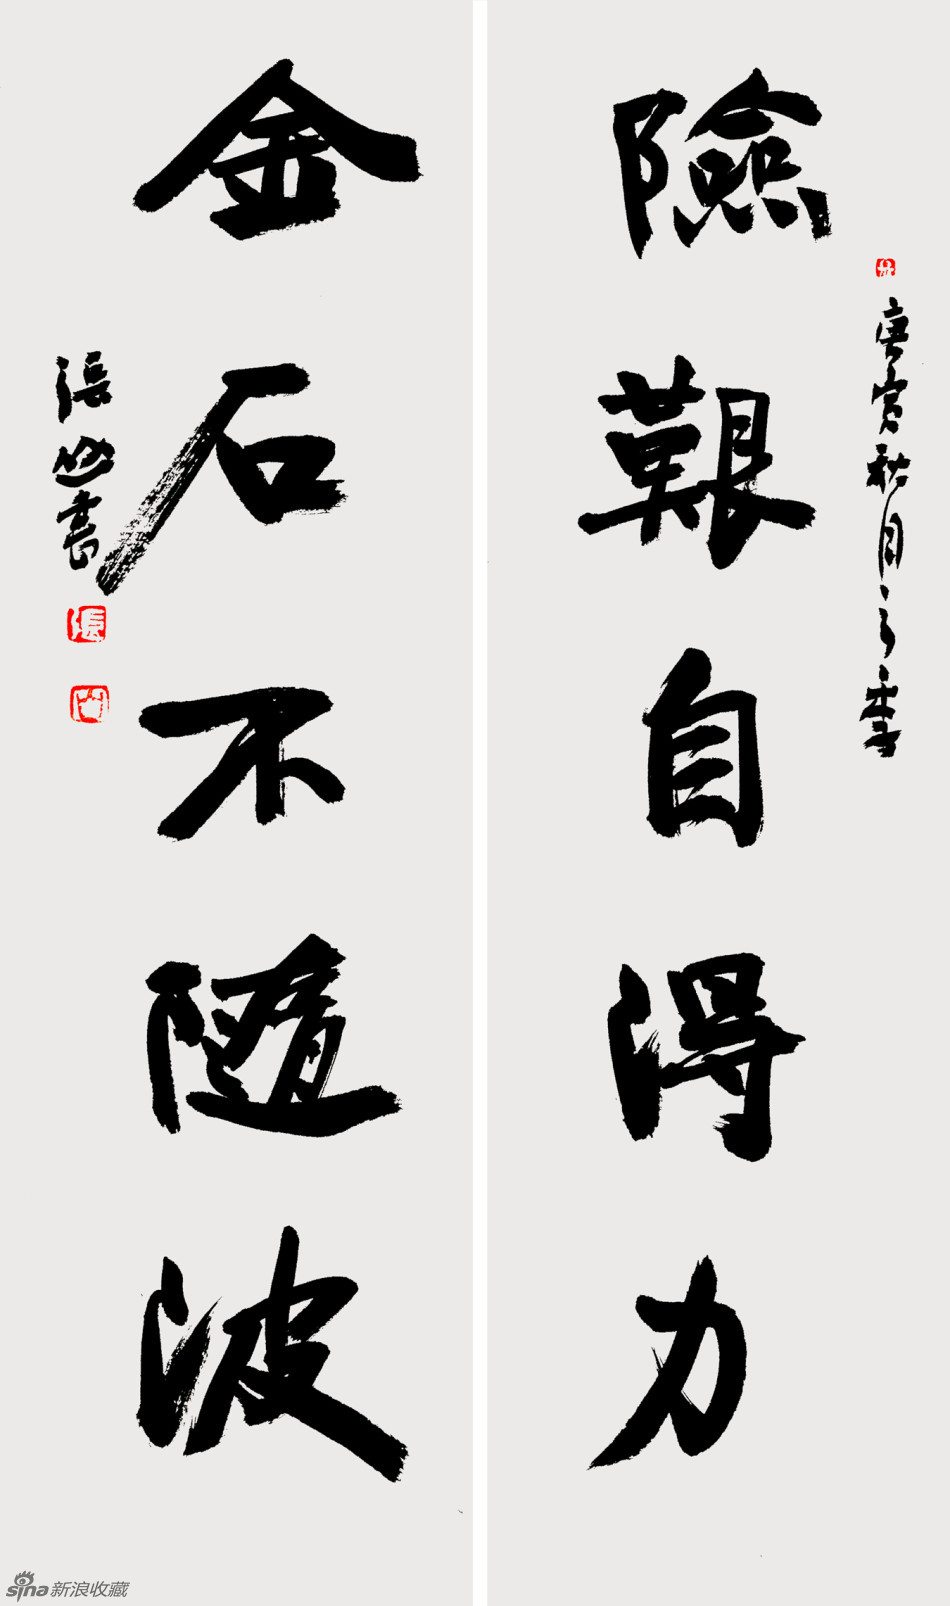 庚寅秋月之季
險艱自得力
金石不隨波
張 書
張
sina新浪收藏